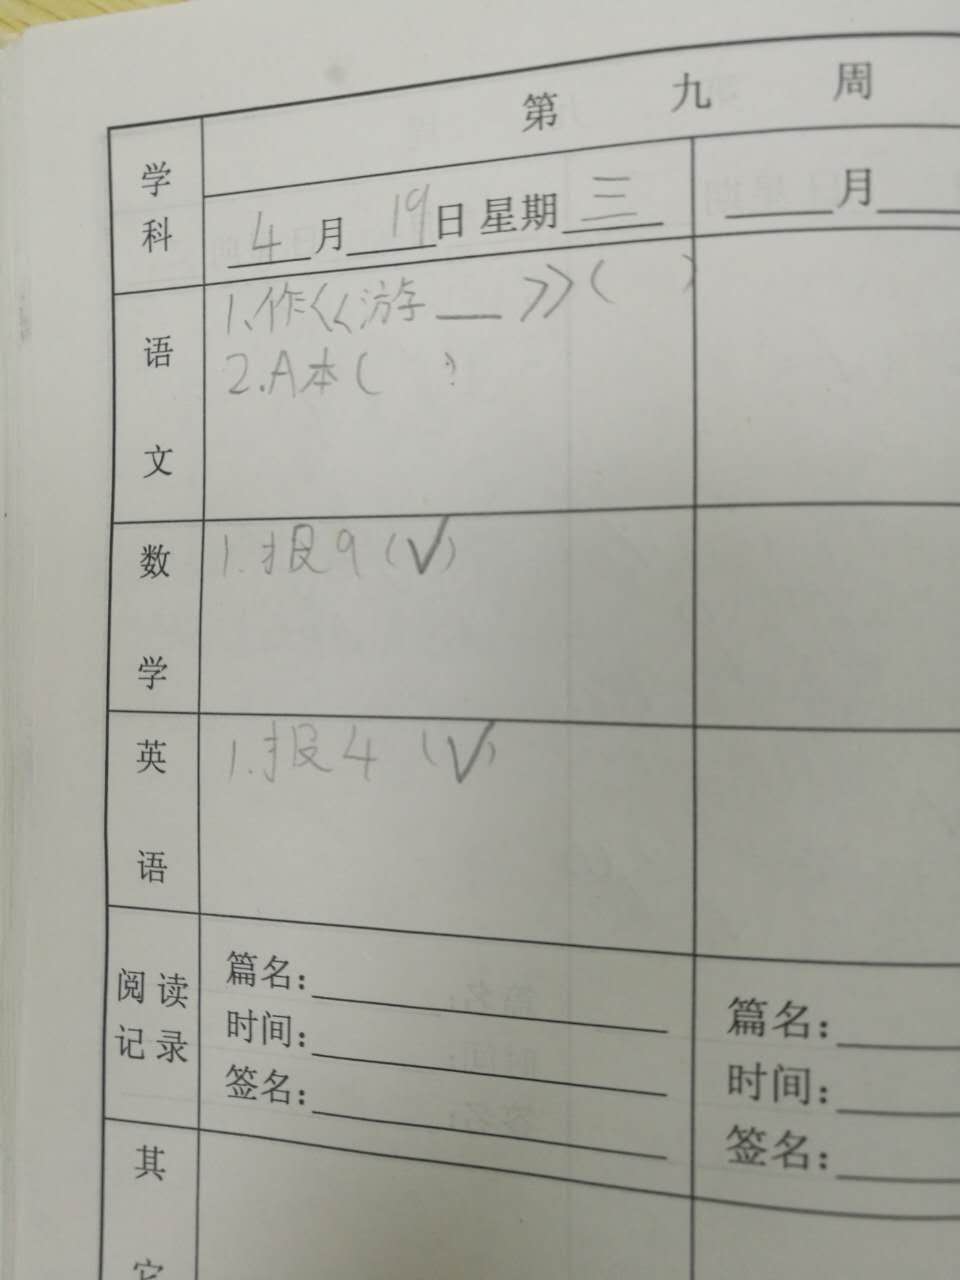 第 九 周
学科
4月19日 星期三
月
语文
1.作《游__》( )
2.A本( )
数学
1.报9(√)
英语
1.报4(√)
阅读记录
篇名:
时间:
签名:
篇名:
时间:
签名:
其它